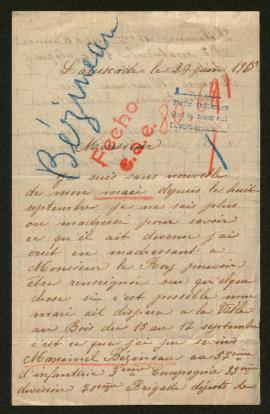 Lauscade le 29 juin 1915
Bézineau
Fecho
e.o.e.
Monsieur
je suis sans nouvelle
de mon mari depuis le huit
septembre je ne sais plus
ou madresse pour savoir
ce qu'il ait devenu j'ai
crest en madressant a
Monsieur le Roy pouvoir
être renseigné sur quelque
chose si c'est possible mon
mari ait disparu a la Ville
au Bois du 15 au 17 septembre
c'est ce que j'ai pu savoir
Bézineau au 57eme
d'infanterie 3eme Compagnie 35eme
division Brigade dépots de